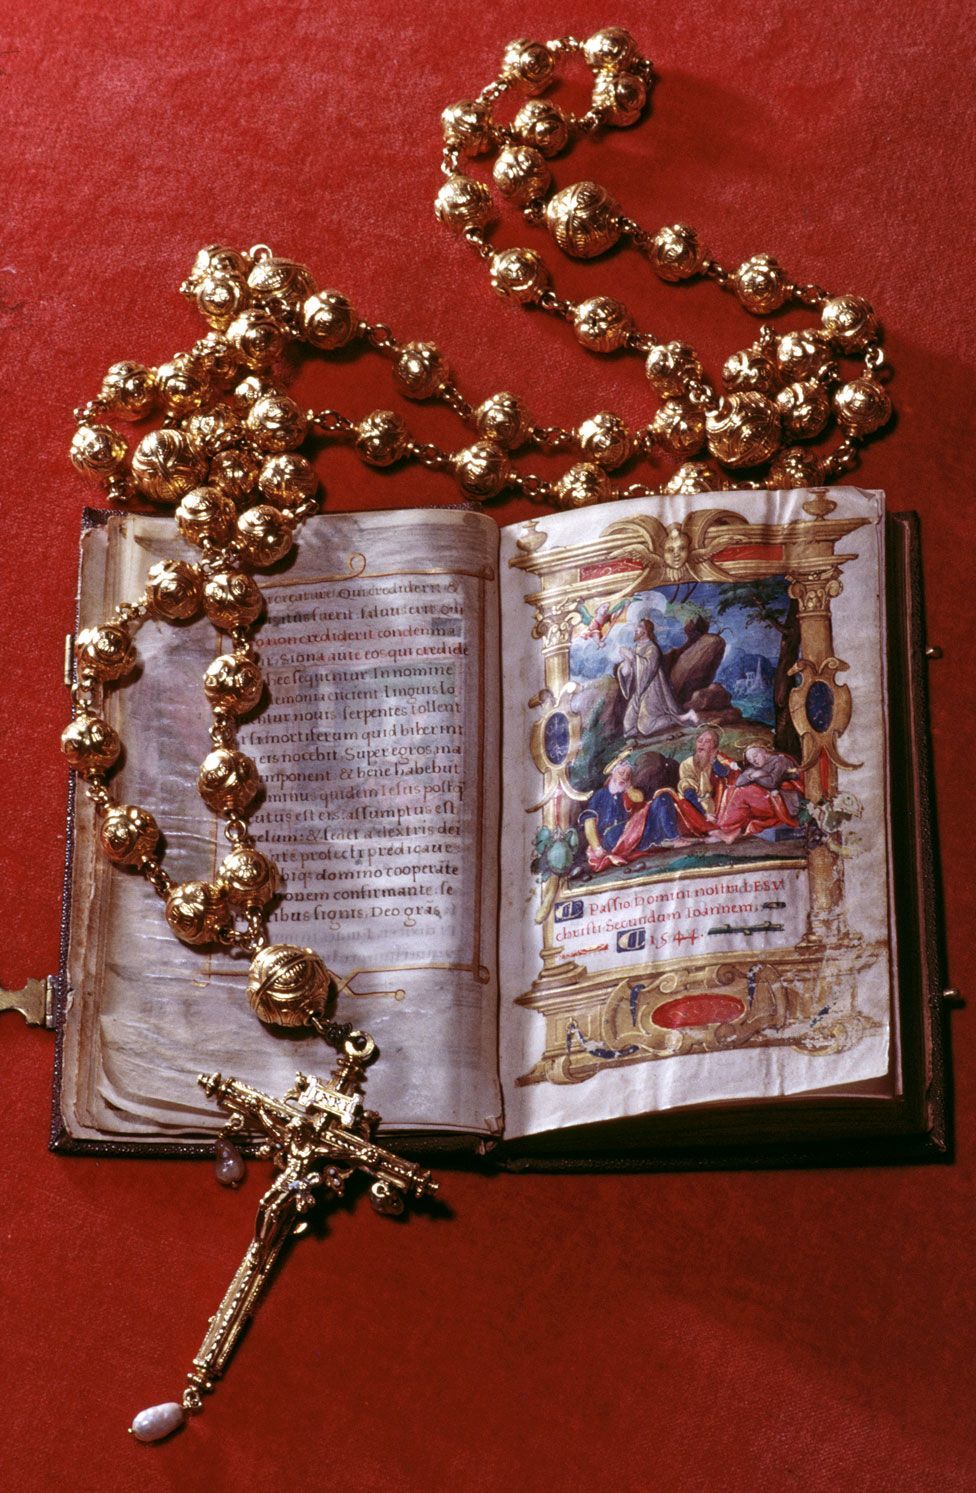 creature. Qui crediderit &
fuerit saluus erit. Qui
non crediderit condemna
Signa aute eos qui credide
hec sequentur. In nomine
emonia eiicient linguis lo
entur nouis serpentes tollent
si mortiferum quid biberint
eis nocebit. Super egros ma
imponent & bene habebut
ominus quidem Iesus postq̃
cutus est eis: assumptus est
celum: & sedet a dextris dei
profecti predicaue
biq; domino cooperate
onem confirmante. se
tibus signis. Deo grãs
Passio Domini nostri IESV
christi Secundum Ioannem.
1544.
INRI